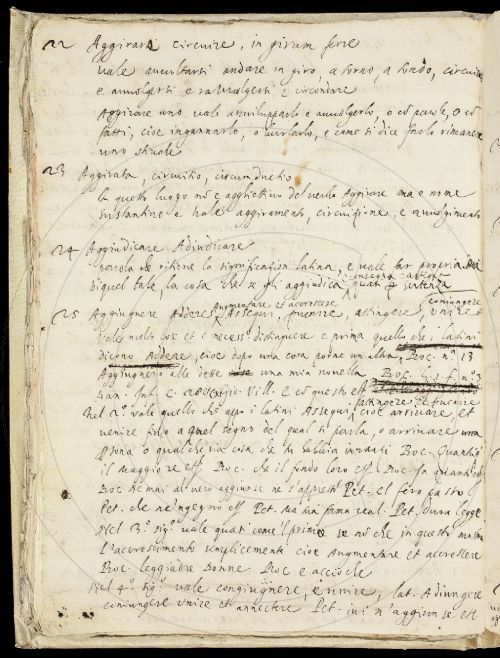 22 Aggirarsi circuire, in girum ferre
vale avvoltarsi andare in giro, a torno, a tondo, circuire
e avvolgersi e ravvolgersi, e circondare
Aggirare uno vale avvilupparlo e avvolgerlo, o cõ parole, o cõ
fatti, cioe ingannarlo, o burlarlo, e come si dice farlo rimanere
uno stivale
23 Aggirata, circuitio, circumductio
In questo luogo nõ è agghiettivo del verbo Aggirare ma e nome
sustantivo e vale aggiramento, circuizione, e avvolgimento
24 Aggiudicare Adiudicare
parola che ritiene la significatiõn latina, e vale far propria
di quel tale, la cosa che se gli aggiudica sentenza
augmentare et accrescere coniungere
25 Aggiugnere Addere Assequi, pervenire, attingere, unire
vale molte cose et è necess.o distinguere e prima quello che i latini
dicono Addere, cioe dopo una cosa porne un altra, Boc. n.o 13
Aggiugnerò alle dette una mia novella Boc. n.o 3
Dan. Inf. c. Gio: Vill.
attingere
Nel 2.o vale quello che appo i latini Assequi, cioe arrivare et
venire fino a quel segno del qual si parla, o arrivare una
p̃sona o qualche sia cosa che tu habbia verdasi Boc. Quantũq
il maggiore ess. Boc. che il fondo loro ess. Boc. In quanti
Boc. ne mai al vero aggiunse ne s'appressò Pet. el fero passo
Pet. che ne'ngegno ess. Pet. ma fama real. Pet. dura legge
Nel 3.o sig.o vale quasi come il primo se nõ che in questo mostra
l'accrescimento semplicemente cioe Augmentare et accrescere
Boc. leggiadre Donne Boc e accioche
Nel 4.o sig.o vale congiugnere, e unire, lat. Adiungere
coniungere unire et annectere Pet. ivi m'aggiunse ess.